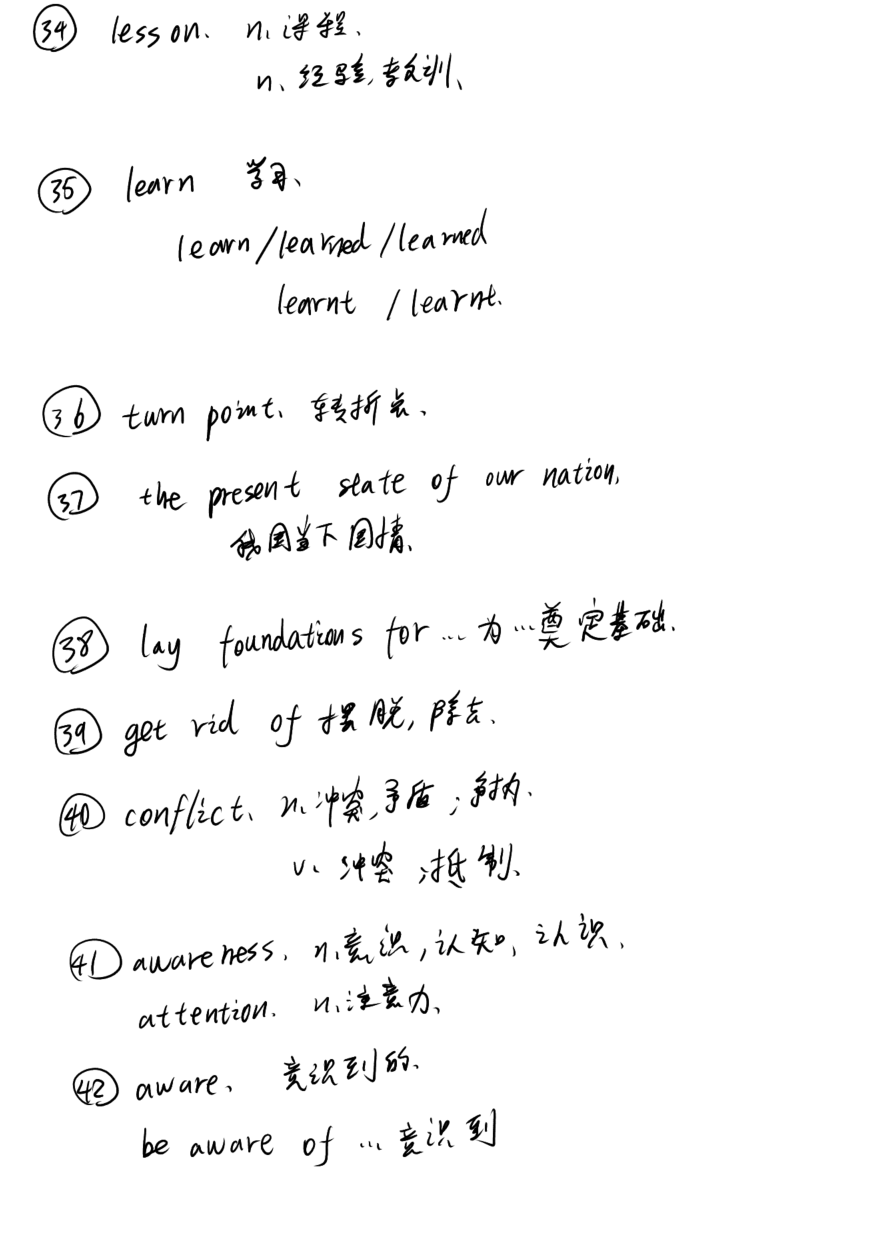 ㉞ lesson. n. 课程.
n. 经验,教训.
㉟ learn 学习.
learn/learned/learned
learnt /learnt.
㊱ turn point. 转折点.
㊲ the present state of our nation,
我国当下国情.
㊳ lay foundations for … 为…奠定基础.
㊴ get rid of 摆脱,除去.
㊵ conflict. n. 冲突,矛盾;争执.
v. 冲突;抵制.
㊶ awareness. n. 意识,认知,认识.
attention. n. 注意力.
㊷ aware. 意识到的.
be aware of … 意识到